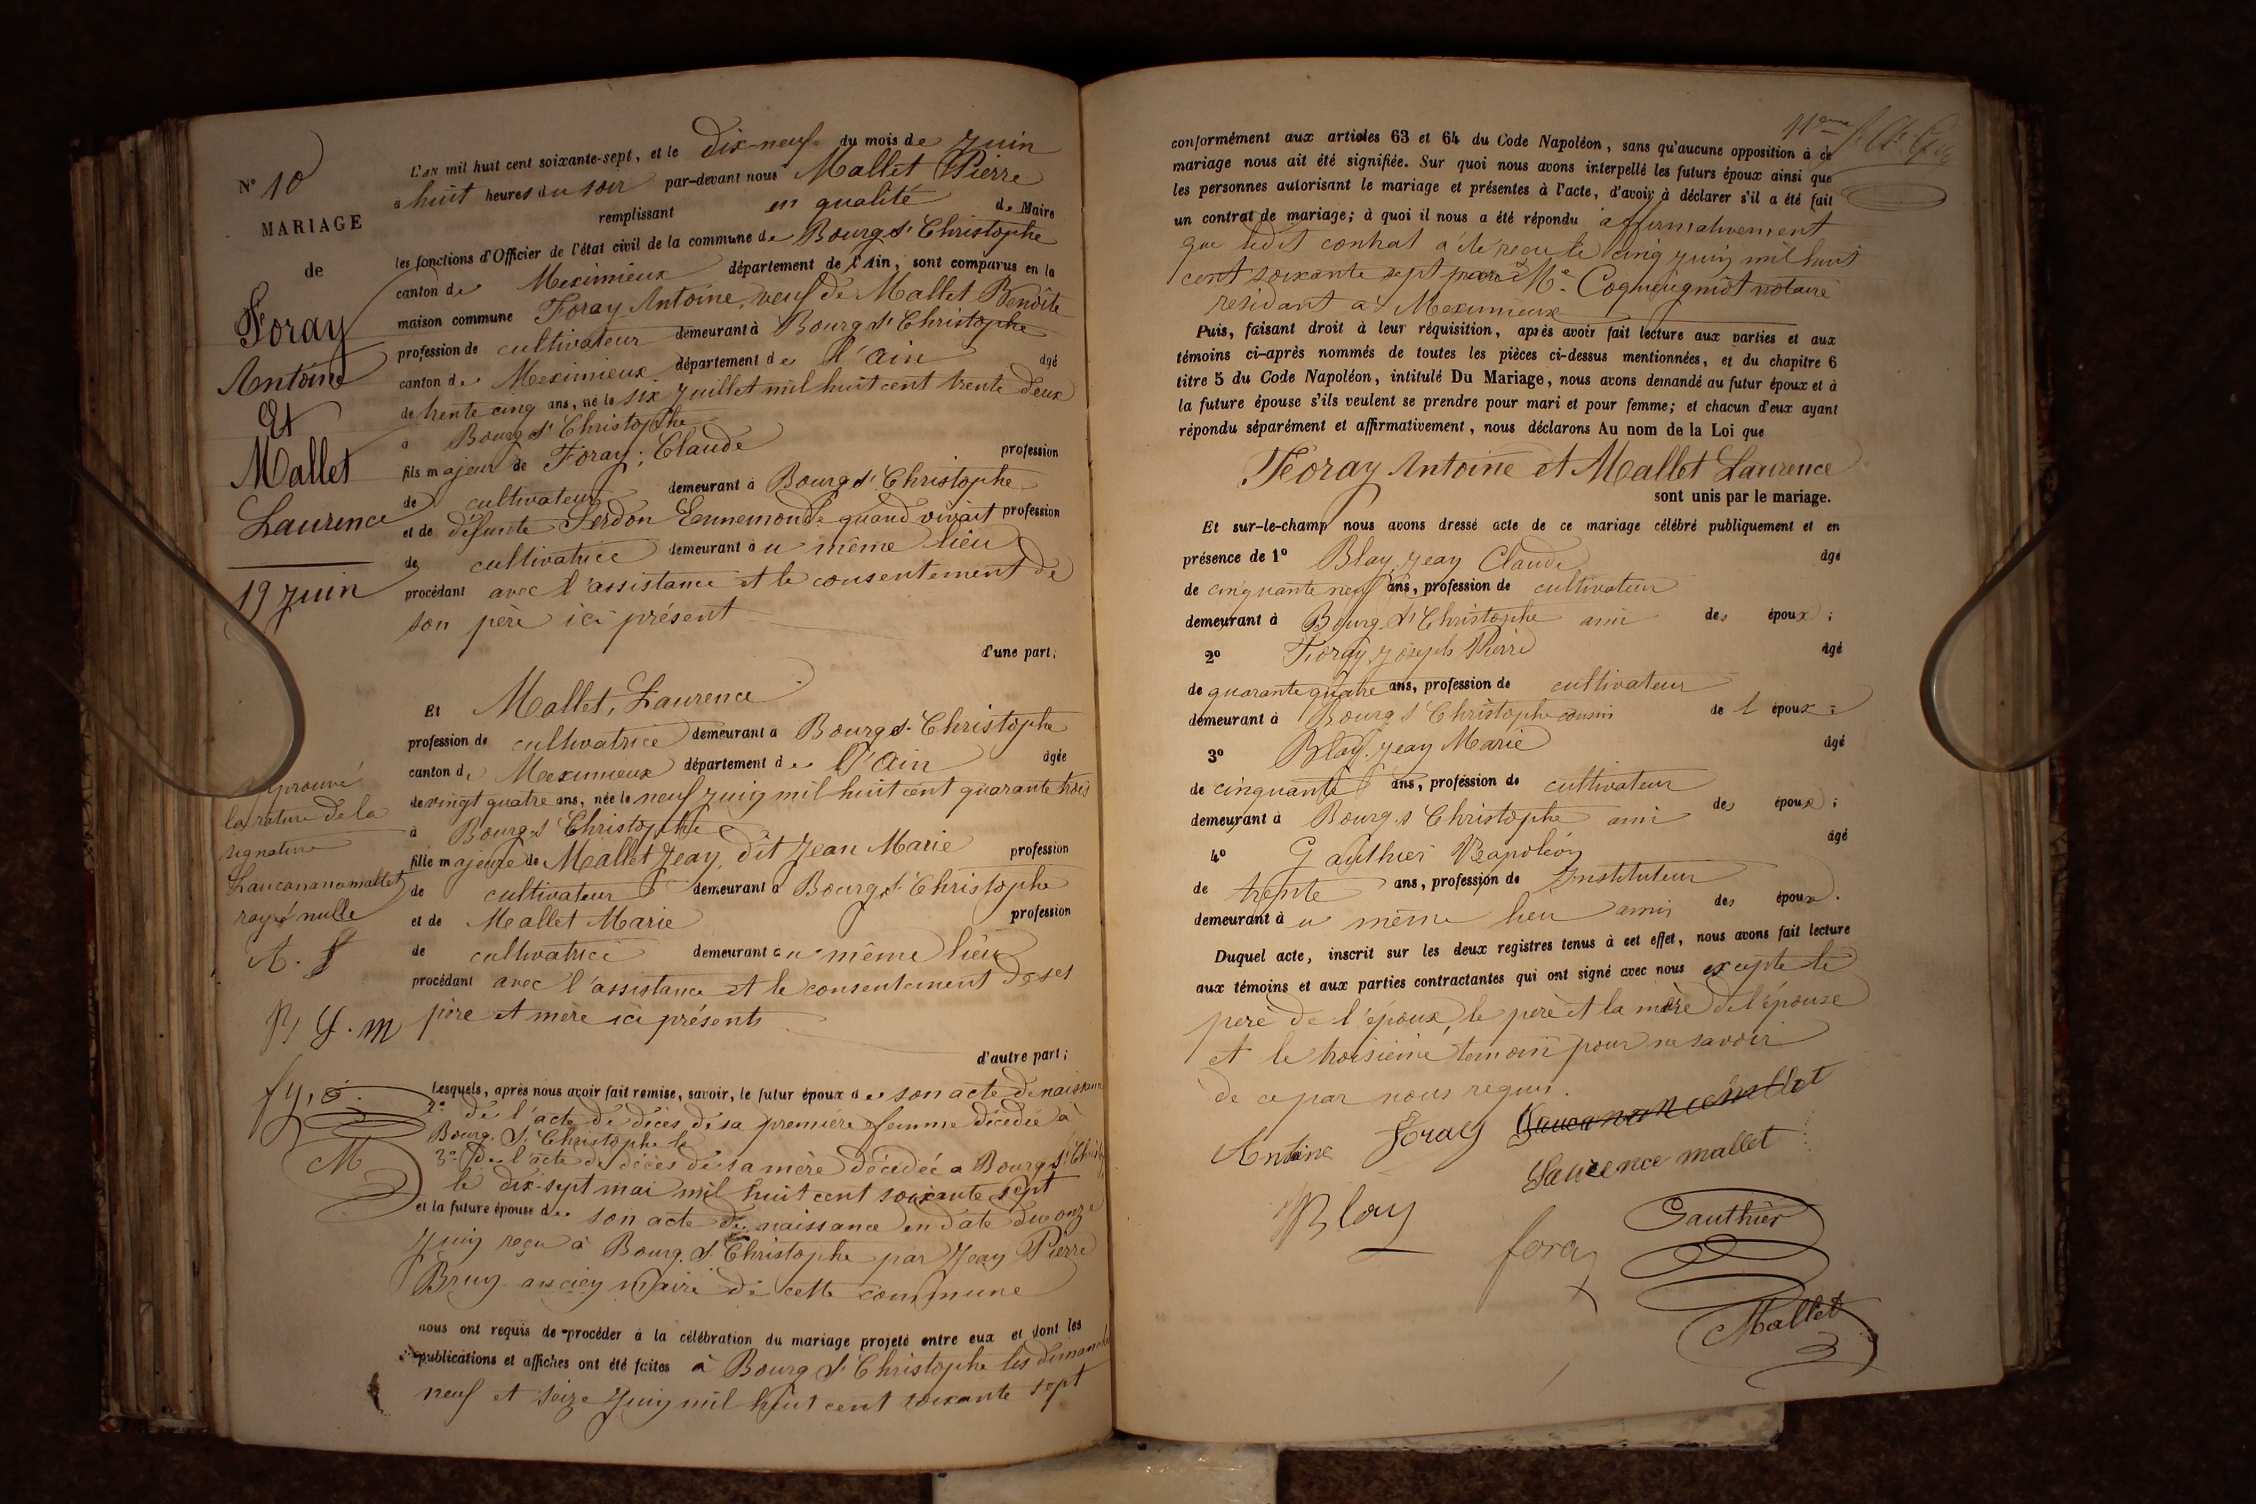 N° 10
MARIAGE
de
Foray
Antoine
Et
Mallet
Laurence
19 Juin
approuvé
la rature de la
signature
Laucananamallet
rayé nulle
A. f
B J. m
f y, G.
M
L'an mil huit cent soixante-sept, et le dix-neuf du mois de Juin
à huit heures du soir par-devant nous Mallet Pierre
remplissant en qualité de Maire
les fonctions d'Officier de l'état civil de la commune de Bourg St Christophe
canton de Meximieux département de l'Ain, sont comparus en la
maison commune Foray Antoine, veuf de Mallet Benoîte
profession de cultivateur demeurant à Bourg St Christophe
canton de Meximieux département de l'Ain âgé
de trente cinq ans, né le six Juillet mil huit cent trente deux
à Bourg St Christophe
fils majeur de Foray, Claude profession
de cultivateur demeurant à Bourg St Christophe
et de défunte Serdon Ennemonde quand vivait profession
de cultivatrice demeurant au même lieu
procédant avec l'assistance et le consentement de
son père ici présent
d'une part;
Et Mallet, Laurence
profession de cultivatrice demeurant à Bourg St Christophe
canton de Meximieux département de l'Ain âgée
de vingt quatre ans, née le neuf Juin mil huit cent quarante trois
à Bourg St Christophe
fille majeure de Mallet Jean, dit Jean Marie profession
de cultivateur demeurant à Bourg St Christophe
et de Mallet Marie profession
de cultivatrice demeurant au même lieu
procédant avec l'assistance et le consentement de ses
père et mère ici présents
d'autre part;
Lesquels, après nous avoir fait remise, savoir, le futur époux de son acte de naissance
2° de l'acte de décès de sa première femme décédée à
Bourg St Christophe le
3° de l'acte de décès de sa mère décédée à Bourg St Christophe
le dix-sept mai mil huit cent soixante sept
et la future épouse de son acte de naissance en date du onze
Juin reçu à Bourg St Christophe par Jean Pierre
Bruy ancien maire de cette commune
nous ont requis de procéder à la célébration du mariage projeté entre eux et dont les
publications et affiches ont été faites à Bourg St Christophe les dimanches
neuf et seize Juin mil huit cent soixante sept
11eme
conformément aux articles 63 et 64 du Code Napoléon, sans qu'aucune opposition à ce
mariage nous ait été signifiée. Sur quoi nous avons interpellé les futurs époux ainsi que
les personnes autorisant le mariage et présentes à l'acte, d'avoir à déclarer s'il a été fait
un contrat de mariage; à quoi il nous a été répondu affirmativement
que ledit contrat a été reçu le cinq juin mil huit
cent soixante sept par Me Coqueugniot notaire
résidant à Meximieux
Puis, faisant droit à leur réquisition, après avoir fait lecture aux parties et aux
témoins ci-après nommés de toutes les pièces ci-dessus mentionnées, et du chapitre 6
titre 5 du Code Napoléon, intitulé Du Mariage, nous avons demandé au futur époux et à
la future épouse s'ils veulent se prendre pour mari et pour femme; et chacun d'eux ayant
répondu séparément et affirmativement, nous déclarons Au nom de la Loi que
Foray Antoine et Mallet Laurence
sont unis par le mariage.
Et sur-le-champ nous avons dressé acte de ce mariage célébré publiquement et en
présence de 1° Blay, Jean Claude âgé
de cinquante neuf ans, profession de cultivateur
demeurant à Bourg St Christophe ami des époux;
2° Foray, Joseph Pierre âgé
de quarante quatre ans, profession de cultivateur
demeurant à Bourg St Christophe cousin de l'époux;
3° Blay, Jean Marie âgé
de cinquante ans, profession de cultivateur
demeurant à Bourg St Christophe ami des époux;
4° Gauthier Napoléon âgé
de trente ans, profession de Instituteur
demeurant au même lieu amis des époux.
Duquel acte, inscrit sur les deux registres tenus à cet effet, nous avons fait lecture
aux témoins et aux parties contractantes qui ont signé avec nous excepté le
père de l'époux, le père et la mère de l'épouse
et le troisième témoin pour ne savoir
de ce par nous requis.
Antoine Foray Laucanan mallet
Laurence mallet
Blay
foray
Gauthier
Mallet